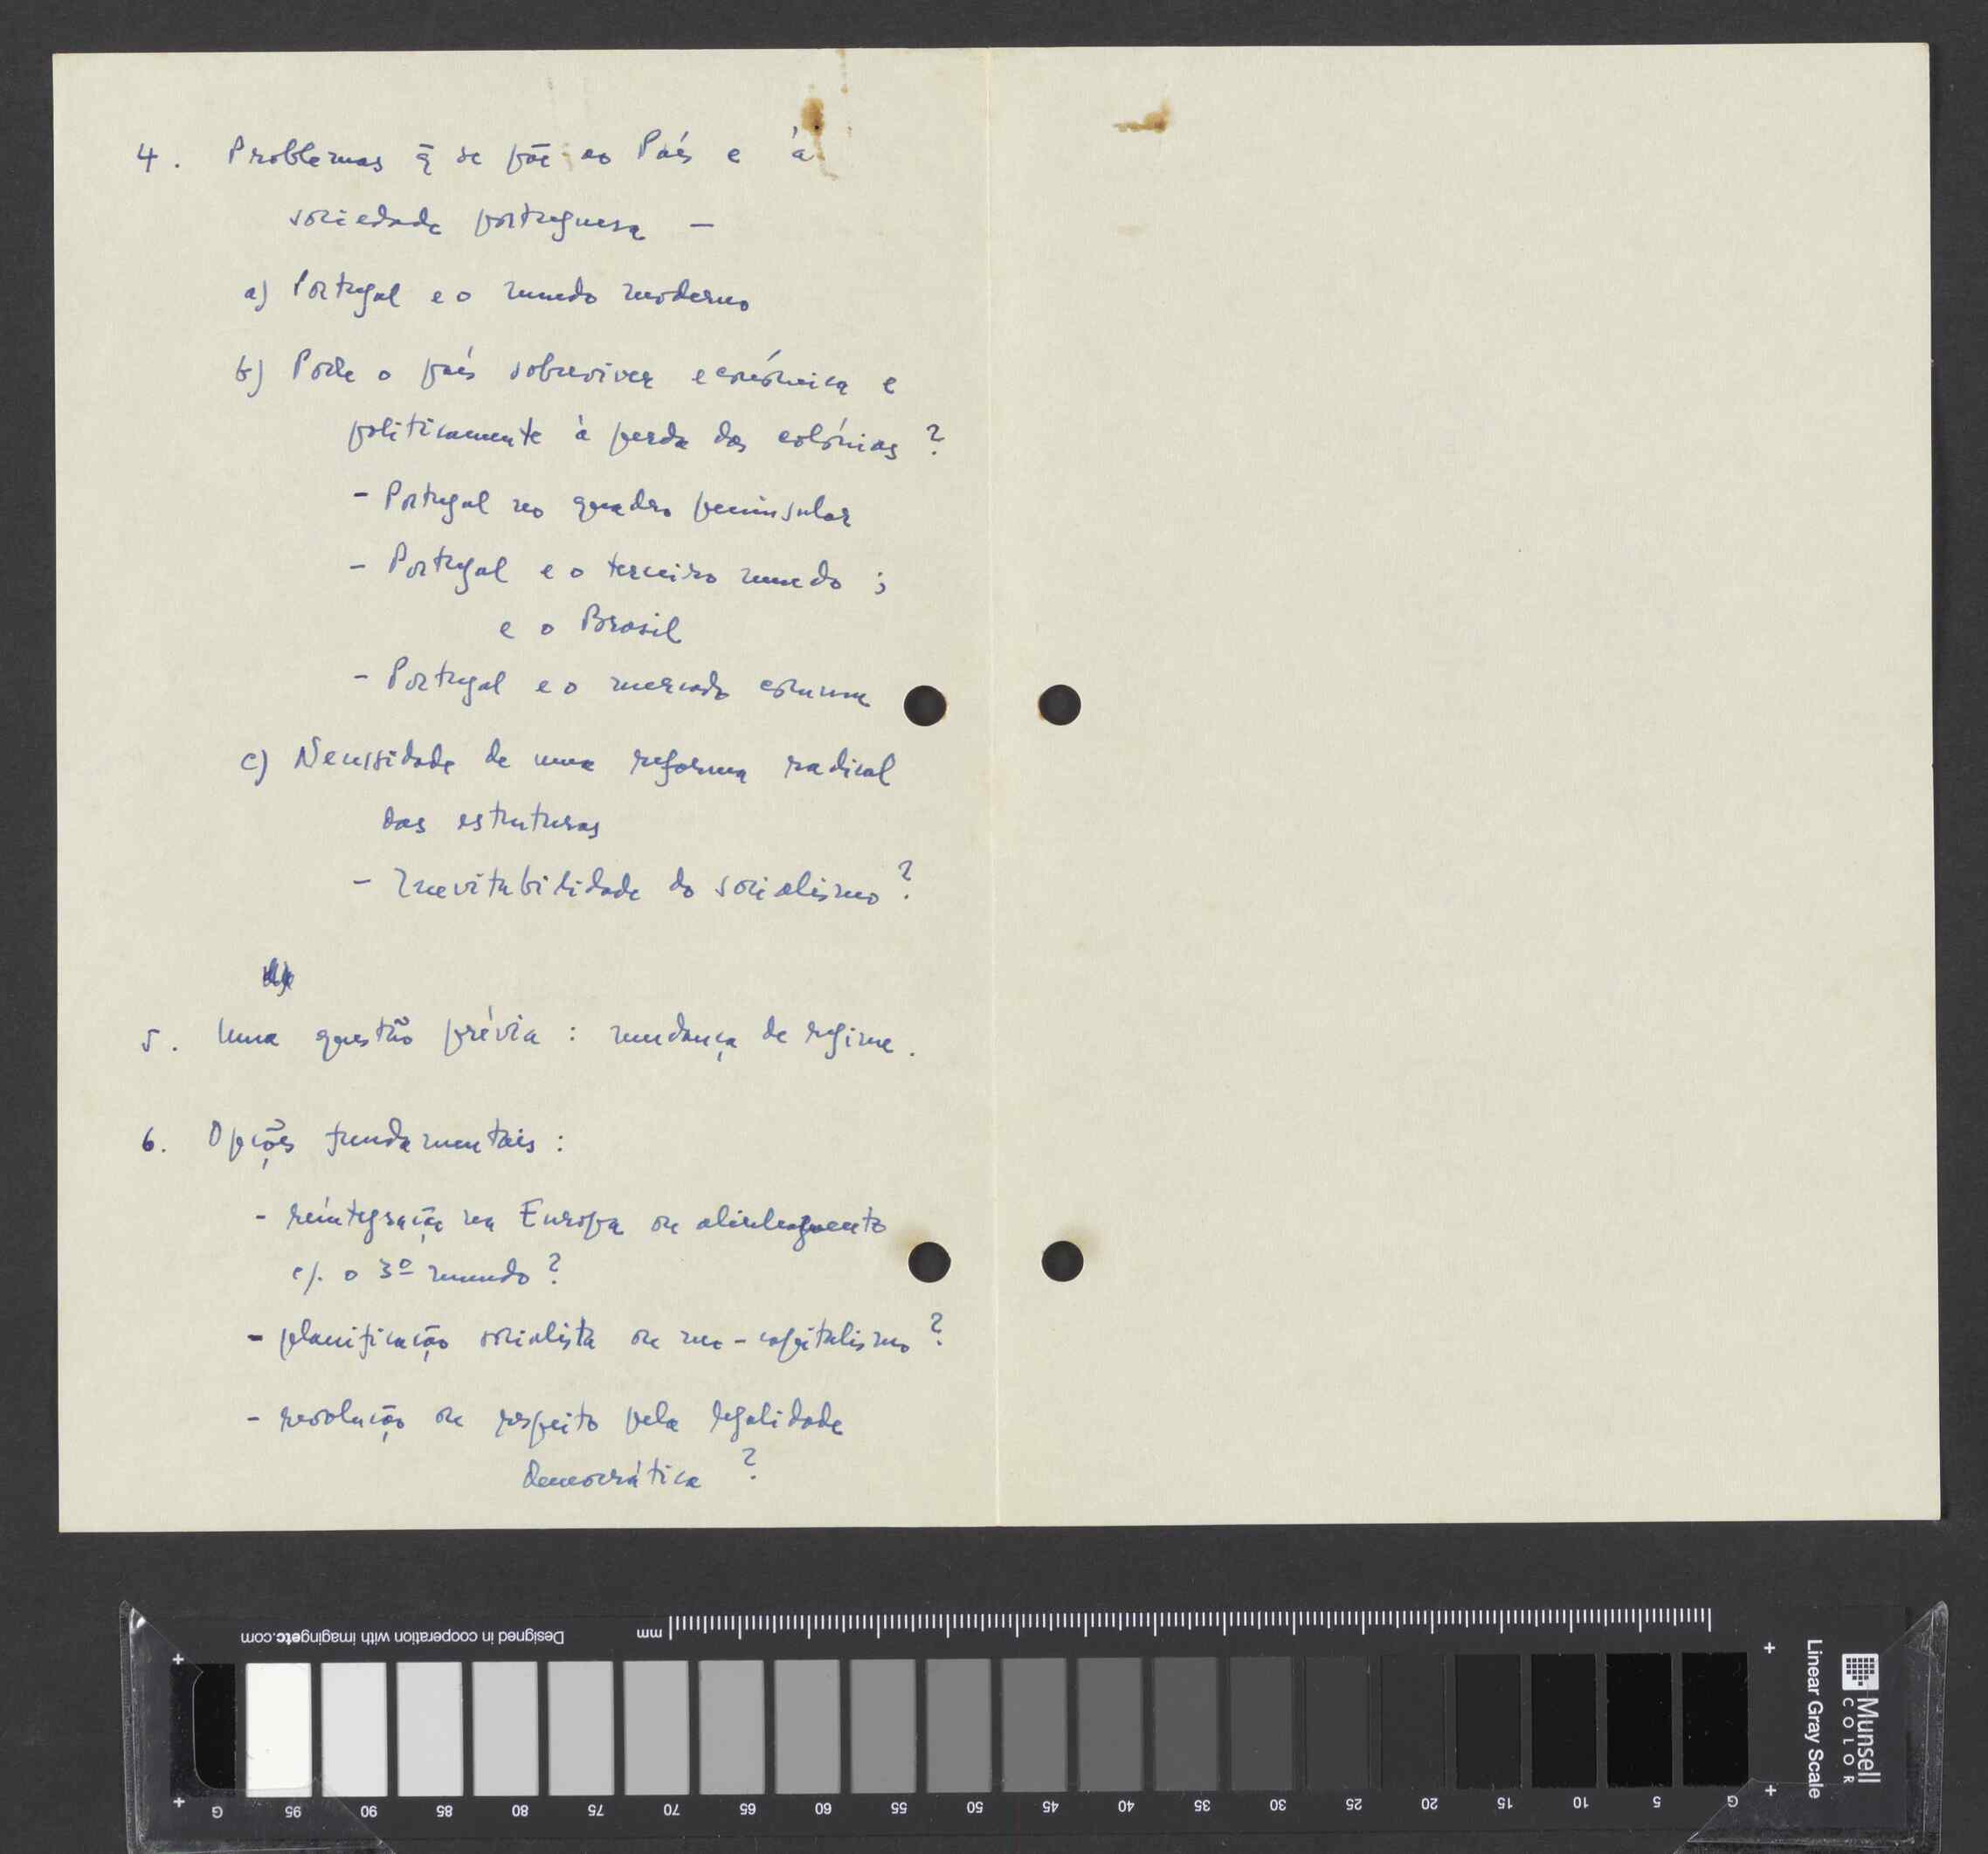 4. Problemas q̄ se põe ao País e à
sociedade portuguesa —
a) Portugal e o mundo moderno
b) Pode o país sobreviver económica e
politicamente à perda das colónias ?
- Portugal no quadro peninsular
- Portugal e o terceiro mundo ;
e o Brasil
- Portugal e o mercado comum
c) Necessidade de uma reforma radical
das estruturas
- Inevitabilidade do socialismo ?
5. Uma questão prévia : mudança de regime.
6. Opções fundamentais :
- reintegração na Europa ou
c/. o 3º mundo ?
- planificação socialista ou neo-capitalismo ?
- revolução ou respeito pela legalidade
democrática ?
Designed in cooperation with imagingetc.com
mm
G 95 90 85 80 75 70 65 60 55 50 45 40 35 30 25 20 15 10 5 G
Linear Gray Scale
Munsell
COLOR